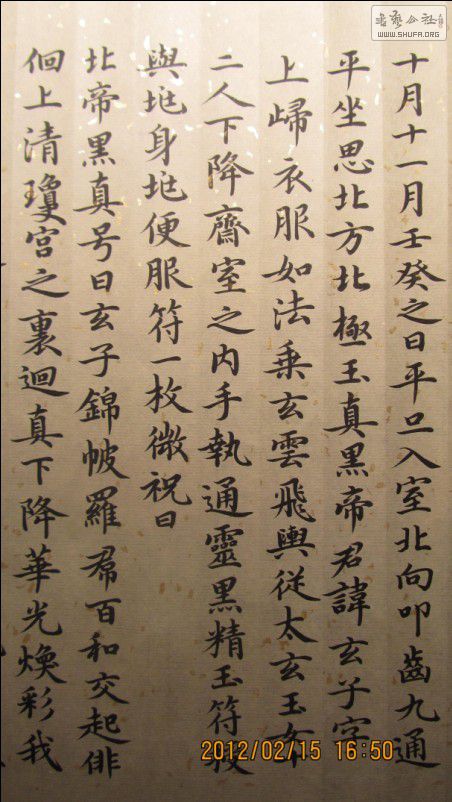 十月十一月壬癸之日平旦入室北向叩齒九通
平坐思北方北極玉真黑帝君諱玄子字
上歸衣服如法乗玄雲飛輿從太玄玉女
二人下降齋室之内手執通靈黑精玉符授
與地身地便服符一枚微祝曰
北帝黒真号曰玄子錦帔羅帬百和交起俳
佪上清瓊宫之裏迴真下降華光煥彩我
書藝公社
WWW.SHUFA.ORG
2012/02/15 16:50